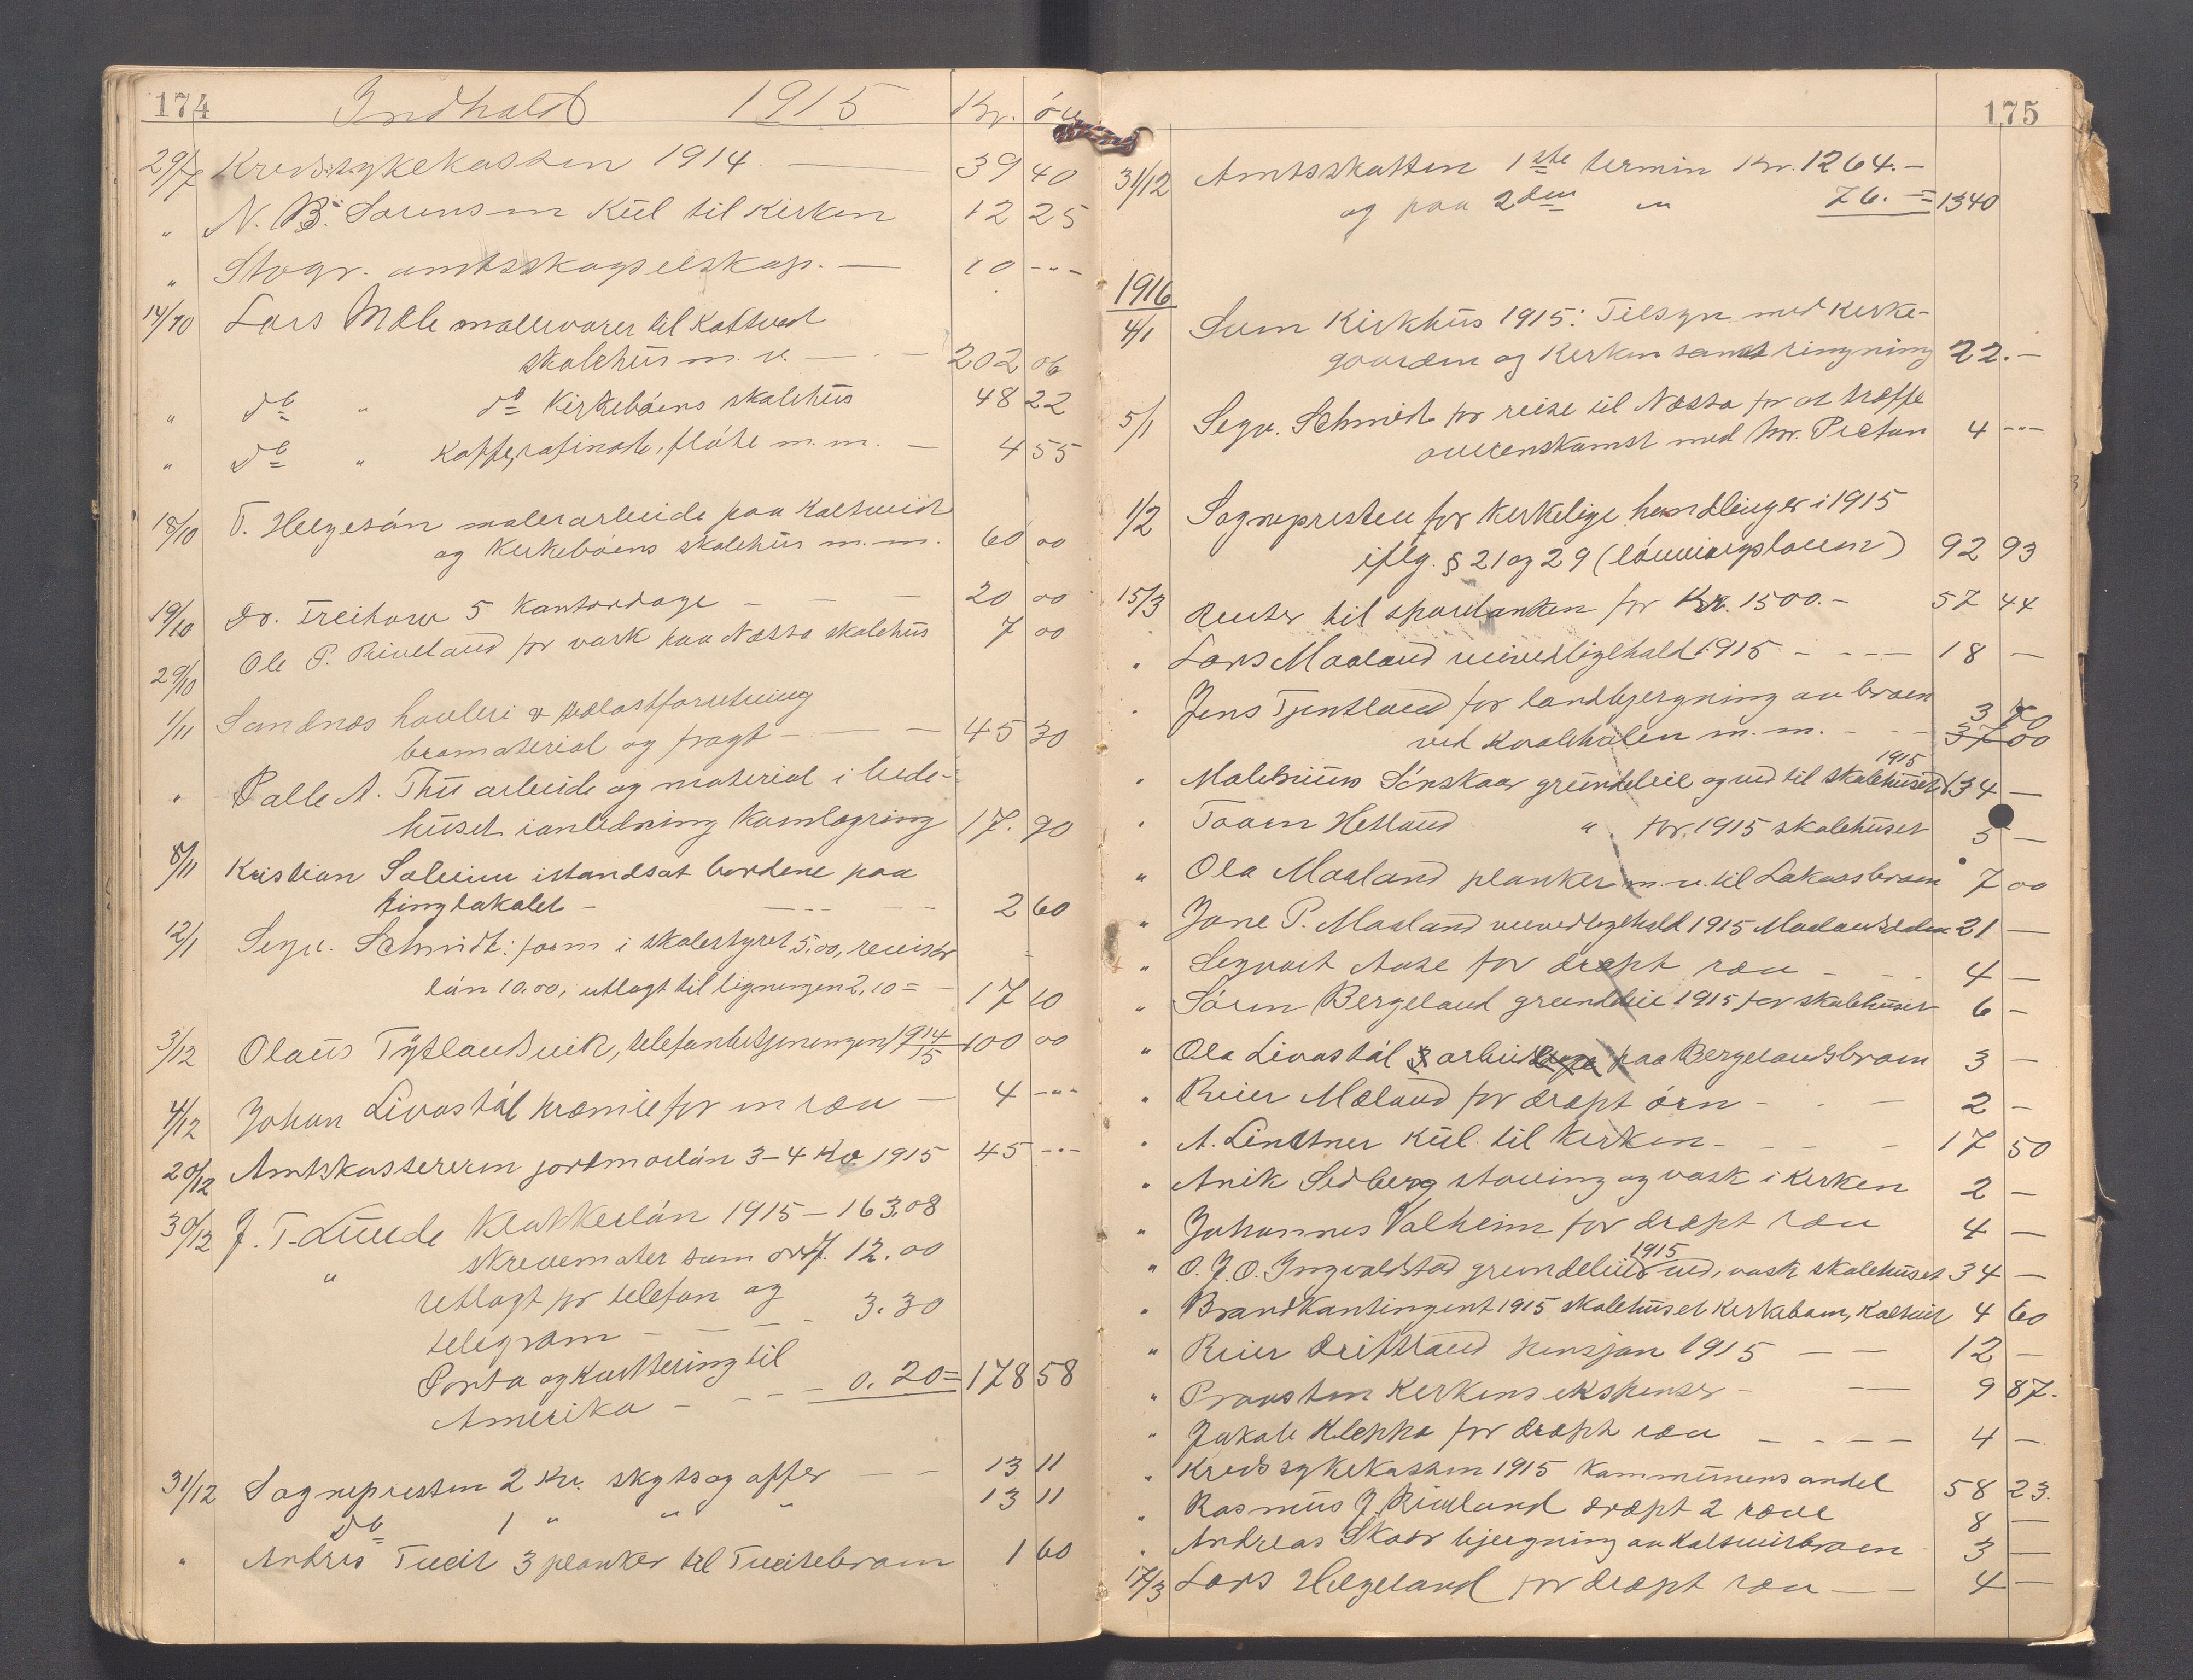 174 Indhold 1915 Kr. öre
29/7 Kredssykekassen 1914 — 39 40
" N. B. Sørensen Kul til Kirken 12 25
" Stvgr. amtsskogselskap. — 10 ---
14/10 Lars Mæle malervarer til Kaltveit
skolehus m. v. — - — 202 06
" do " do Kirkebøens skolehus 48 22
" do " Kaffe, rafinade, fløte m. m. — 4 55
18/10 T. Helgesøn malerarbeide paa Kaltveit
og Kirkebøens skolehus m.m. 60 00
19/10 Dr. Treihow 5 Kontordage — — — 20 00
29/10 Ole P. Riveland for vask paa Næssa skolehus 7 00
1/11 Sandnæs høvleri & trælastforretning
bromaterial og fragt — — — 45 30
" Palle A. Thu arbeide og material i bede-
huset ianledning 17. 90
8/11 Kristian Soleim istandsat bordene paa
tinglokalet — --- — 2 60
12/1 Sigv. Schmidt: form i skolestyret 5,00, revisor
løn 10.00, utlagt til ligningen 2,10 = — 17 10
3/12 Olaus Tytlandsvik, telefonbetjeningen 1914/15 100 00
4/12 Johan Livastøl præmie for en ræv — 4 ---
20/12 Amtskassereren jordmorløn 3-4 Kv. 1915 45 ---
30/12 J. T. Lunde Klokkerløn 1915 — 163.08
" skrivemater som ordf. 12.00
utlagt for telefon og
telegram — — — - 3.30
Porto og Kvittering til
Amerika - - - - 0.20 = 178 58
31/12 Sognepresten 2 Kv. skyts og offer — — 13 11
do 1 " " " 13 11
" Andreas Tveit 3 planker til Tveitebroen 1 60
175
31/12 Amtsskatten 1ste termin Kr. 1264.—
og paa 2den " 76.— = 1340
1916
4/1 Sven Kirkhus 1915: Tilsyn med Kirke-
gaarden og Kirken samt ringning 22.—
5/1 Sigv. Schmidt for reise til Næssa for at træffe
overenskomst med hr. 4 ---
1/2 Sognepresten for Kirkelige handlinger i 1915
iflg. § 21 og 29 (lønningsloven) 92 93
15/3 Renter til sparebanken for Kr. 1500.— 57 44
" Lars Maaland veivedligehold 1915 - - - — 18 —
" Jens Tjentland for landbjergning av broen 3 70
ved Kvalehølen m. m. - - - 37 00
" Maldenius Sønskaar grundeleie og ved til skolehuset 1915 134 —
" Toorn Hetland " for 1915 skolehuset 5 —
" Ola Maaland planker m.v. til Lakaasbroen 7 00
" Jone P. Maaland veivedligehold 1915 Maalandsdalen 21 —
" Sigvart Aase for dræpt ræv - - - 4 —
" Søren Bergeland grundleie 1915 for skolehuset 6 —
" Ola Livastøl arbeide paa Bergelandsbroen 3 —
" Reier Mæland for dræpt ørn - - — 2 —
" A. Lindtner Kul til Kirken - - - — 17 50
" Anik Sedberg støving og vask i Kirken 2 —
" Johannes Valheim for dræpt ræv 4 —
" O. J. O. Ingvaldstad grundeleie 1915 ved, vask skolehuset 34 —
" Brandkontingent 1915 skolehuset Kirkebøen, Kaltveit 4 60
" Reier Drifstland pensjon 1915 — — 12 —
" Provsten Kirkens ekspenser — — 9 87.
" Jakob Kleppa for dræpt ræv — — — — 4 —
" Kredssykekassen 1915 Kommunens andel 58 23.
" Rasmus J. Riveland dræpt 2 ræve 8 —
" Andreas Skaar bjergning av Kaltveitbroen 3 —
17/3 Lars Helgeland for dræpt ræv — — 4 —